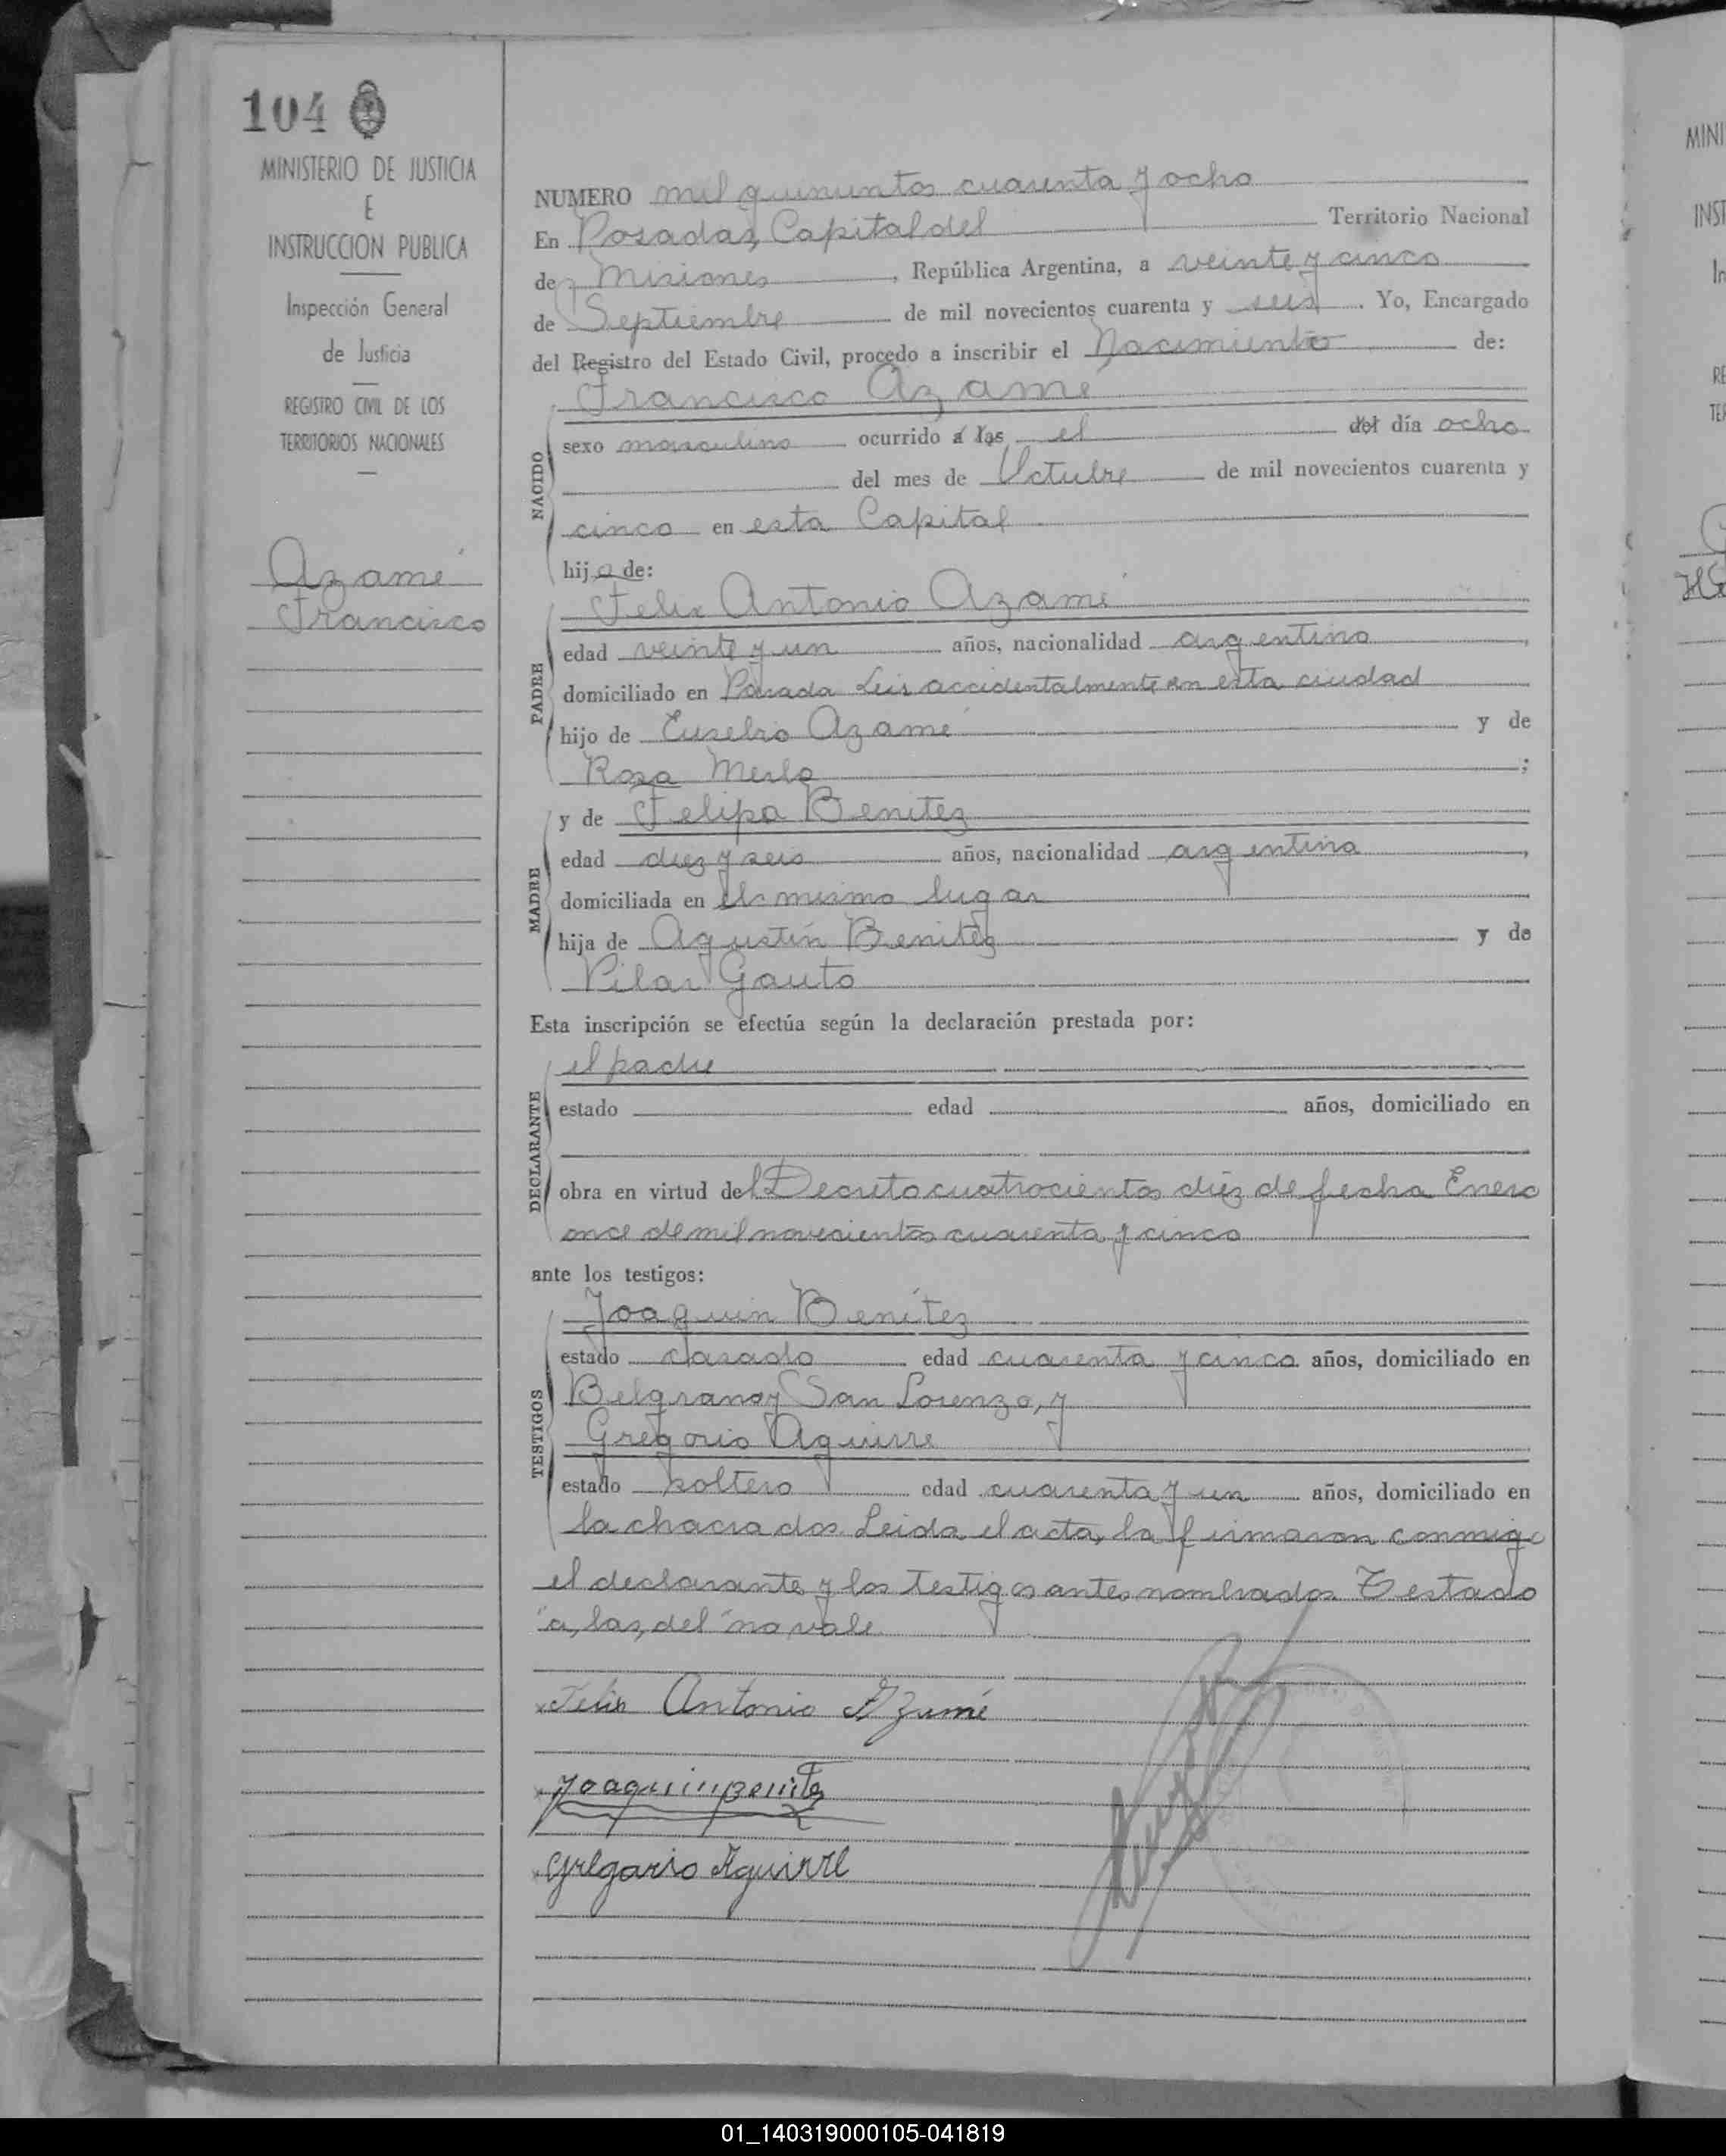 104
MINISTERIO DE JUSTICIA
E
INSTRUCCION PUBLICA
Inspección General
de Justicia
REGISTRO CIVIL DE LOS
TERRITORIOS NACIONALES
Azamé
Francisco
NUMERO mil quinientos cuarenta y ocho
En Posadas, Capital del Territorio Nacional
de Misiones, República Argentina, a veinte y cinco
de Septiembre de mil novecientos cuarenta y seis. Yo, Encargado
del Registro del Estado Civil, procedo a inscribir el Nacimiento de:
Francisco Azamé
NACIDO
sexo masculino ocurrido a las el del día ocho
del mes de Octubre de mil novecientos cuarenta y
cinco en esta Capital
hijo de:
Felix Antonio Azamé
PADRE
edad veinte y un años, nacionalidad argentino,
domiciliado en Posada Leis accidentalmente en esta ciudad
hijo de Eusebio Azamé y de
Rosa Merlo;
y de Felipa Benitez
MADRE
edad diez y seis años, nacionalidad argentina,
domiciliada en el mismo lugar
hija de Agustín Benitez y de
Pilar Gauto
Esta inscripción se efectúa según la declaración prestada por:
el padre
DECLARANTE
estado edad años, domiciliado en
obra en virtud del Decreto cuatrocientos diez de fecha Enero
once de mil novecientos cuarenta y cinco
ante los testigos:
Joaquin Benítez
TESTIGOS
estado casado edad cuarenta y cinco años, domiciliado en
Belgrano y San Lorenzo, y
Gregorio Aguirre
estado soltero edad cuarenta y un años, domiciliado en
la chacra dos. Leida el acta, la firmaron conmigo
el declarante y los testigos antes nombrados. Testado
"a, las, del" no vale.
x Felix Antonio Azamé
x Joaquin Benitez
x Gregorio Aguirre
MINI
INST
In
RE
TER
01_140319000105-041819